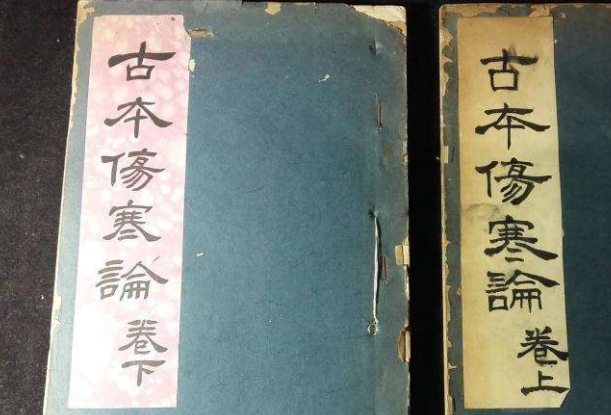 古本傷寒論卷下
古本傷寒論卷上